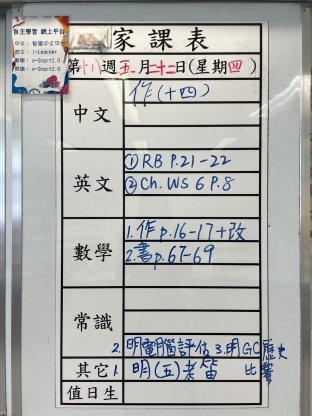 自主學習 網上平台
中文：智愛中文平台
英文：i-Learner
數學：e-Smart2.0
常識：e-Smart2.0
家課表
第十八週五月二十二日(星期四)
中文
作(十四)
英文
①RB P.21-22
②Ch. WS 6 P.8
數學
1.作p.16-17+改
2.書p.67-69
常識
2.明電腦評估 3.明GC歷史比賽
其它
1.明(五)考笛
值日生